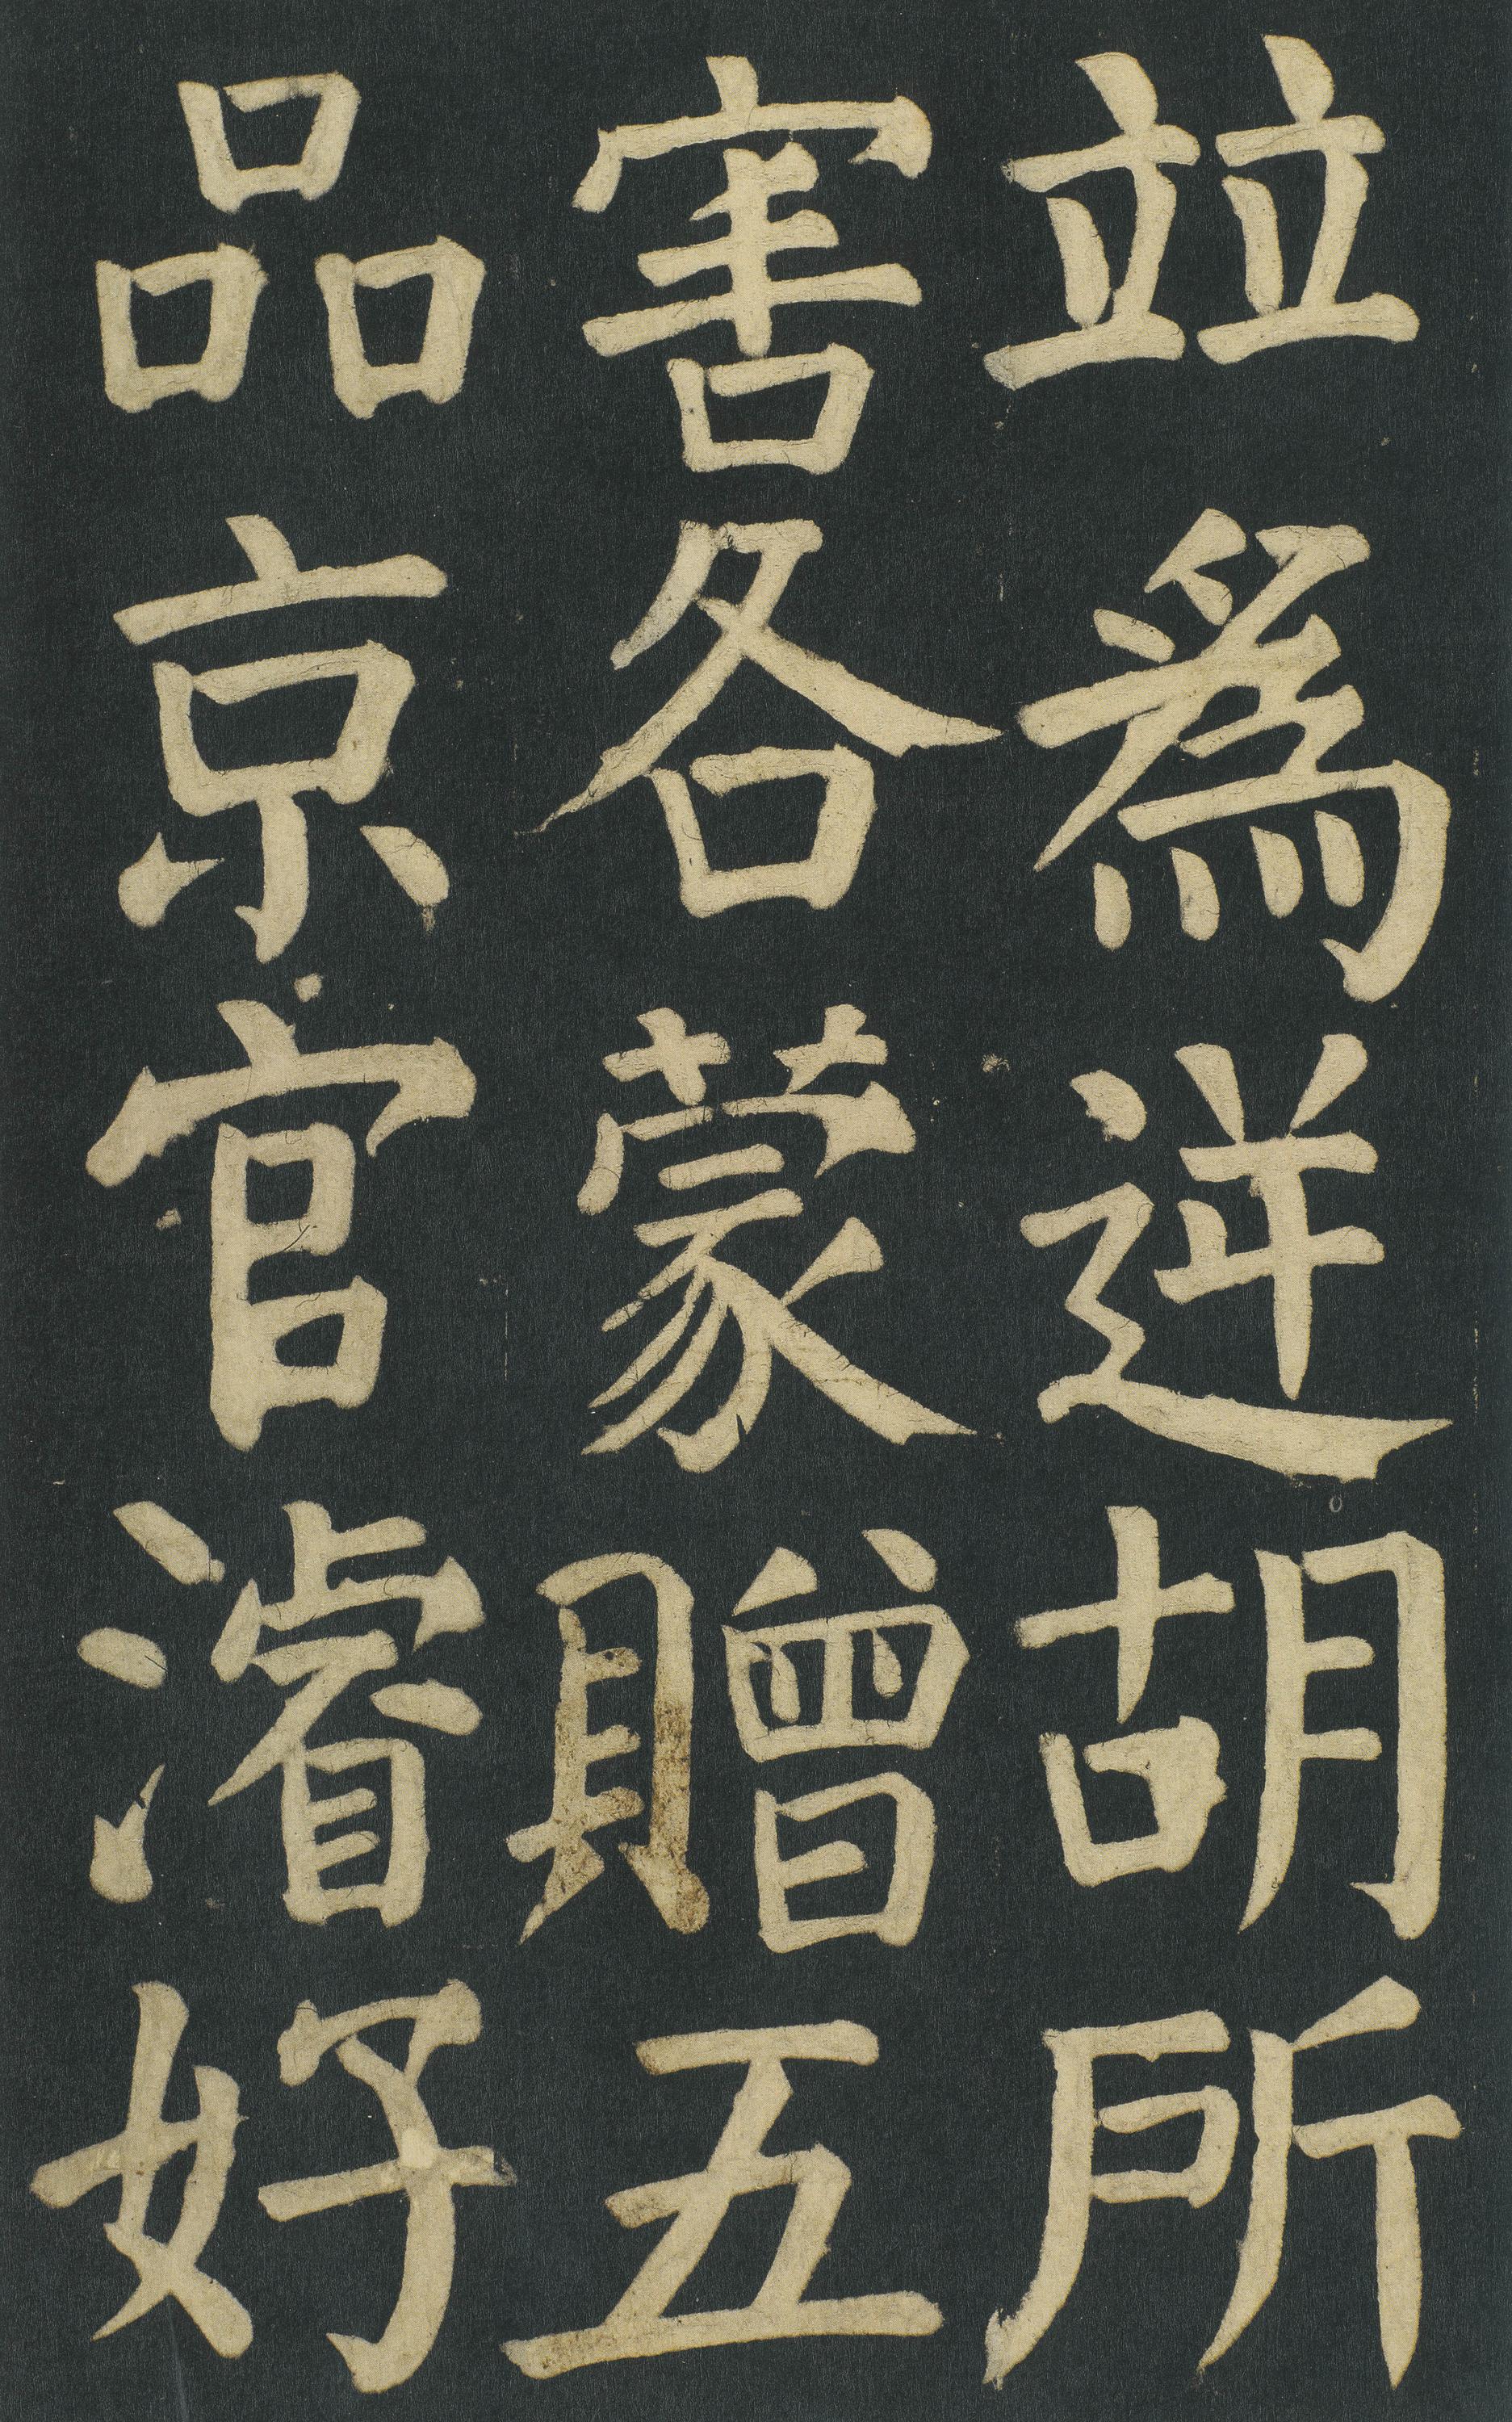 竝爲逆胡所
害各蒙贈五
品京官濬好